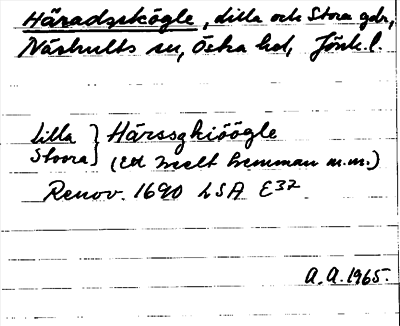 Häradsskögle, Lilla och Stora gdr,
Näshults sn, Östra hd, Jönk. l.
Lilla } Härssghiöögle
Stoora } (Ett heelt hemman m.m.)
Renov. 1690 LSA E 32
A. A. 1965.